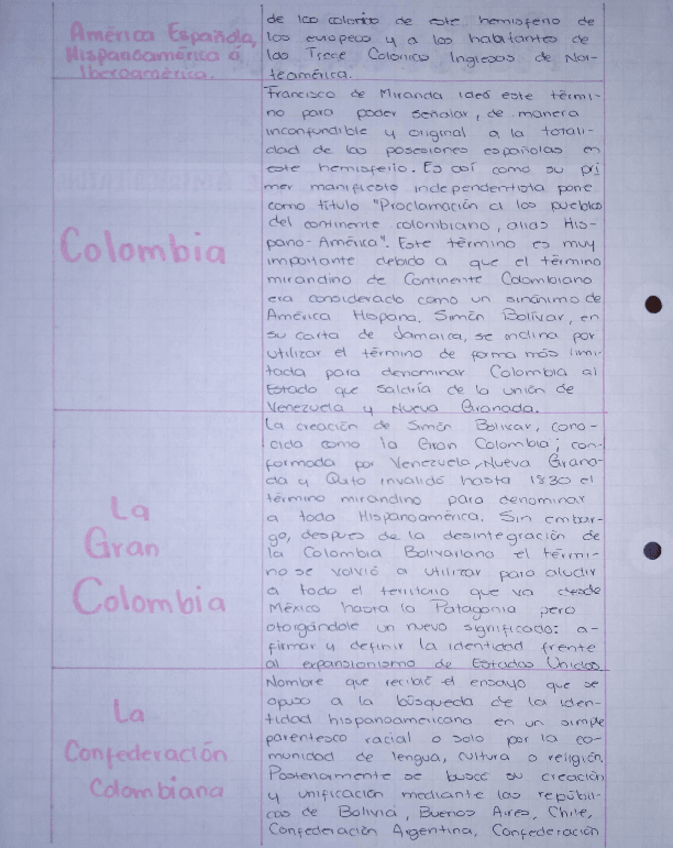 América Española,
Hispanoamérica ó
Iberoamérica.
de los colonos de este hemisferio de
los europeos y a los habitantes de
las Trece Colonias Inglesas de Nor-
teamérica.
Colombia
Francisco de Miranda ideó este térmi-
no para poder señalar, de manera
inconfundible y original a la totali-
dad de las posesiones españolas en
este hemisferio. Es así como su pri
mer manifiesto independentista pone
como título "Proclamación a los pueblos
del continente colombiano, alias His-
pano-América". Este término es muy
importante debido a que el término
mirandino de Continente Colombiano
era considerado como un sinónimo de
América Hispana. Simón Bolívar, en
su carta de Jamaica, se inclina por
utilizar el término de forma más limi-
tada para denominar Colombia al
Estado que saldría de la unión de
Venezuela y Nueva Granada.
La
Gran
Colombia
La creación de Simón Bolívar, cono-
cida como la Gran Colombia; con-
formada por Venezuela, Nueva Grana-
da y Quito invalidó hasta 1830 el
término mirandino para denominar
a toda Hispanoamérica. Sin embar-
go, después de la desintegración de
la Colombia Bolivariana el térmi-
no se volvió a utilizar para aludir
a todo el territorio que va desde
México hasta la Patagonia pero
otorgándole un nuevo significado: a-
firmar y definir la identidad frente
al expansionismo de Estados Unidos
La
Confederación
Colombiana
Nombre que recibió el ensayo que se
opuso a la búsqueda de la iden-
tidad hispanoamericana en un simple
parentesco racial o solo por la co-
munidad de lengua, cultura o religión.
Posteriormente se buscó su creación
y unificación mediante las repúbli-
cas de Bolivia, Buenos Aires, Chile,
Confederación Argentina, Confederación